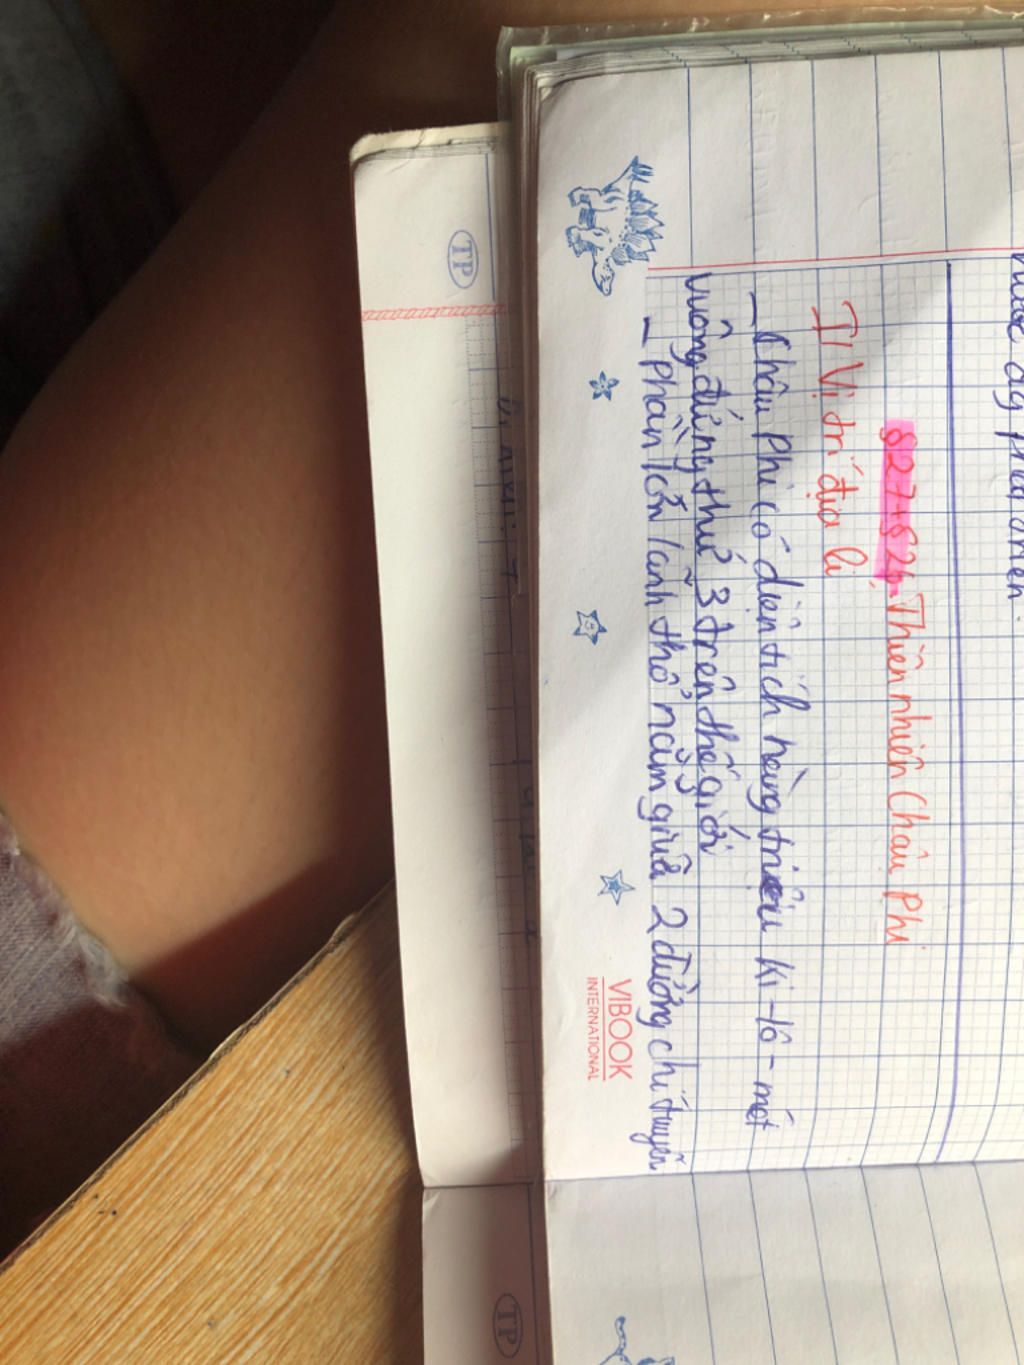 §27+§26, Thiên nhiên Châu Phi
I/ Vị trí địa lí
– Châu Phi có diện tích hàng triệu ki-lô-mét
vuông đứng thứ 3 trên thế giới
– Phần lớn lãnh thổ nằm giữa 2 đường chí tuyến
VIBOOK
INTERNATIONAL
TP
TP